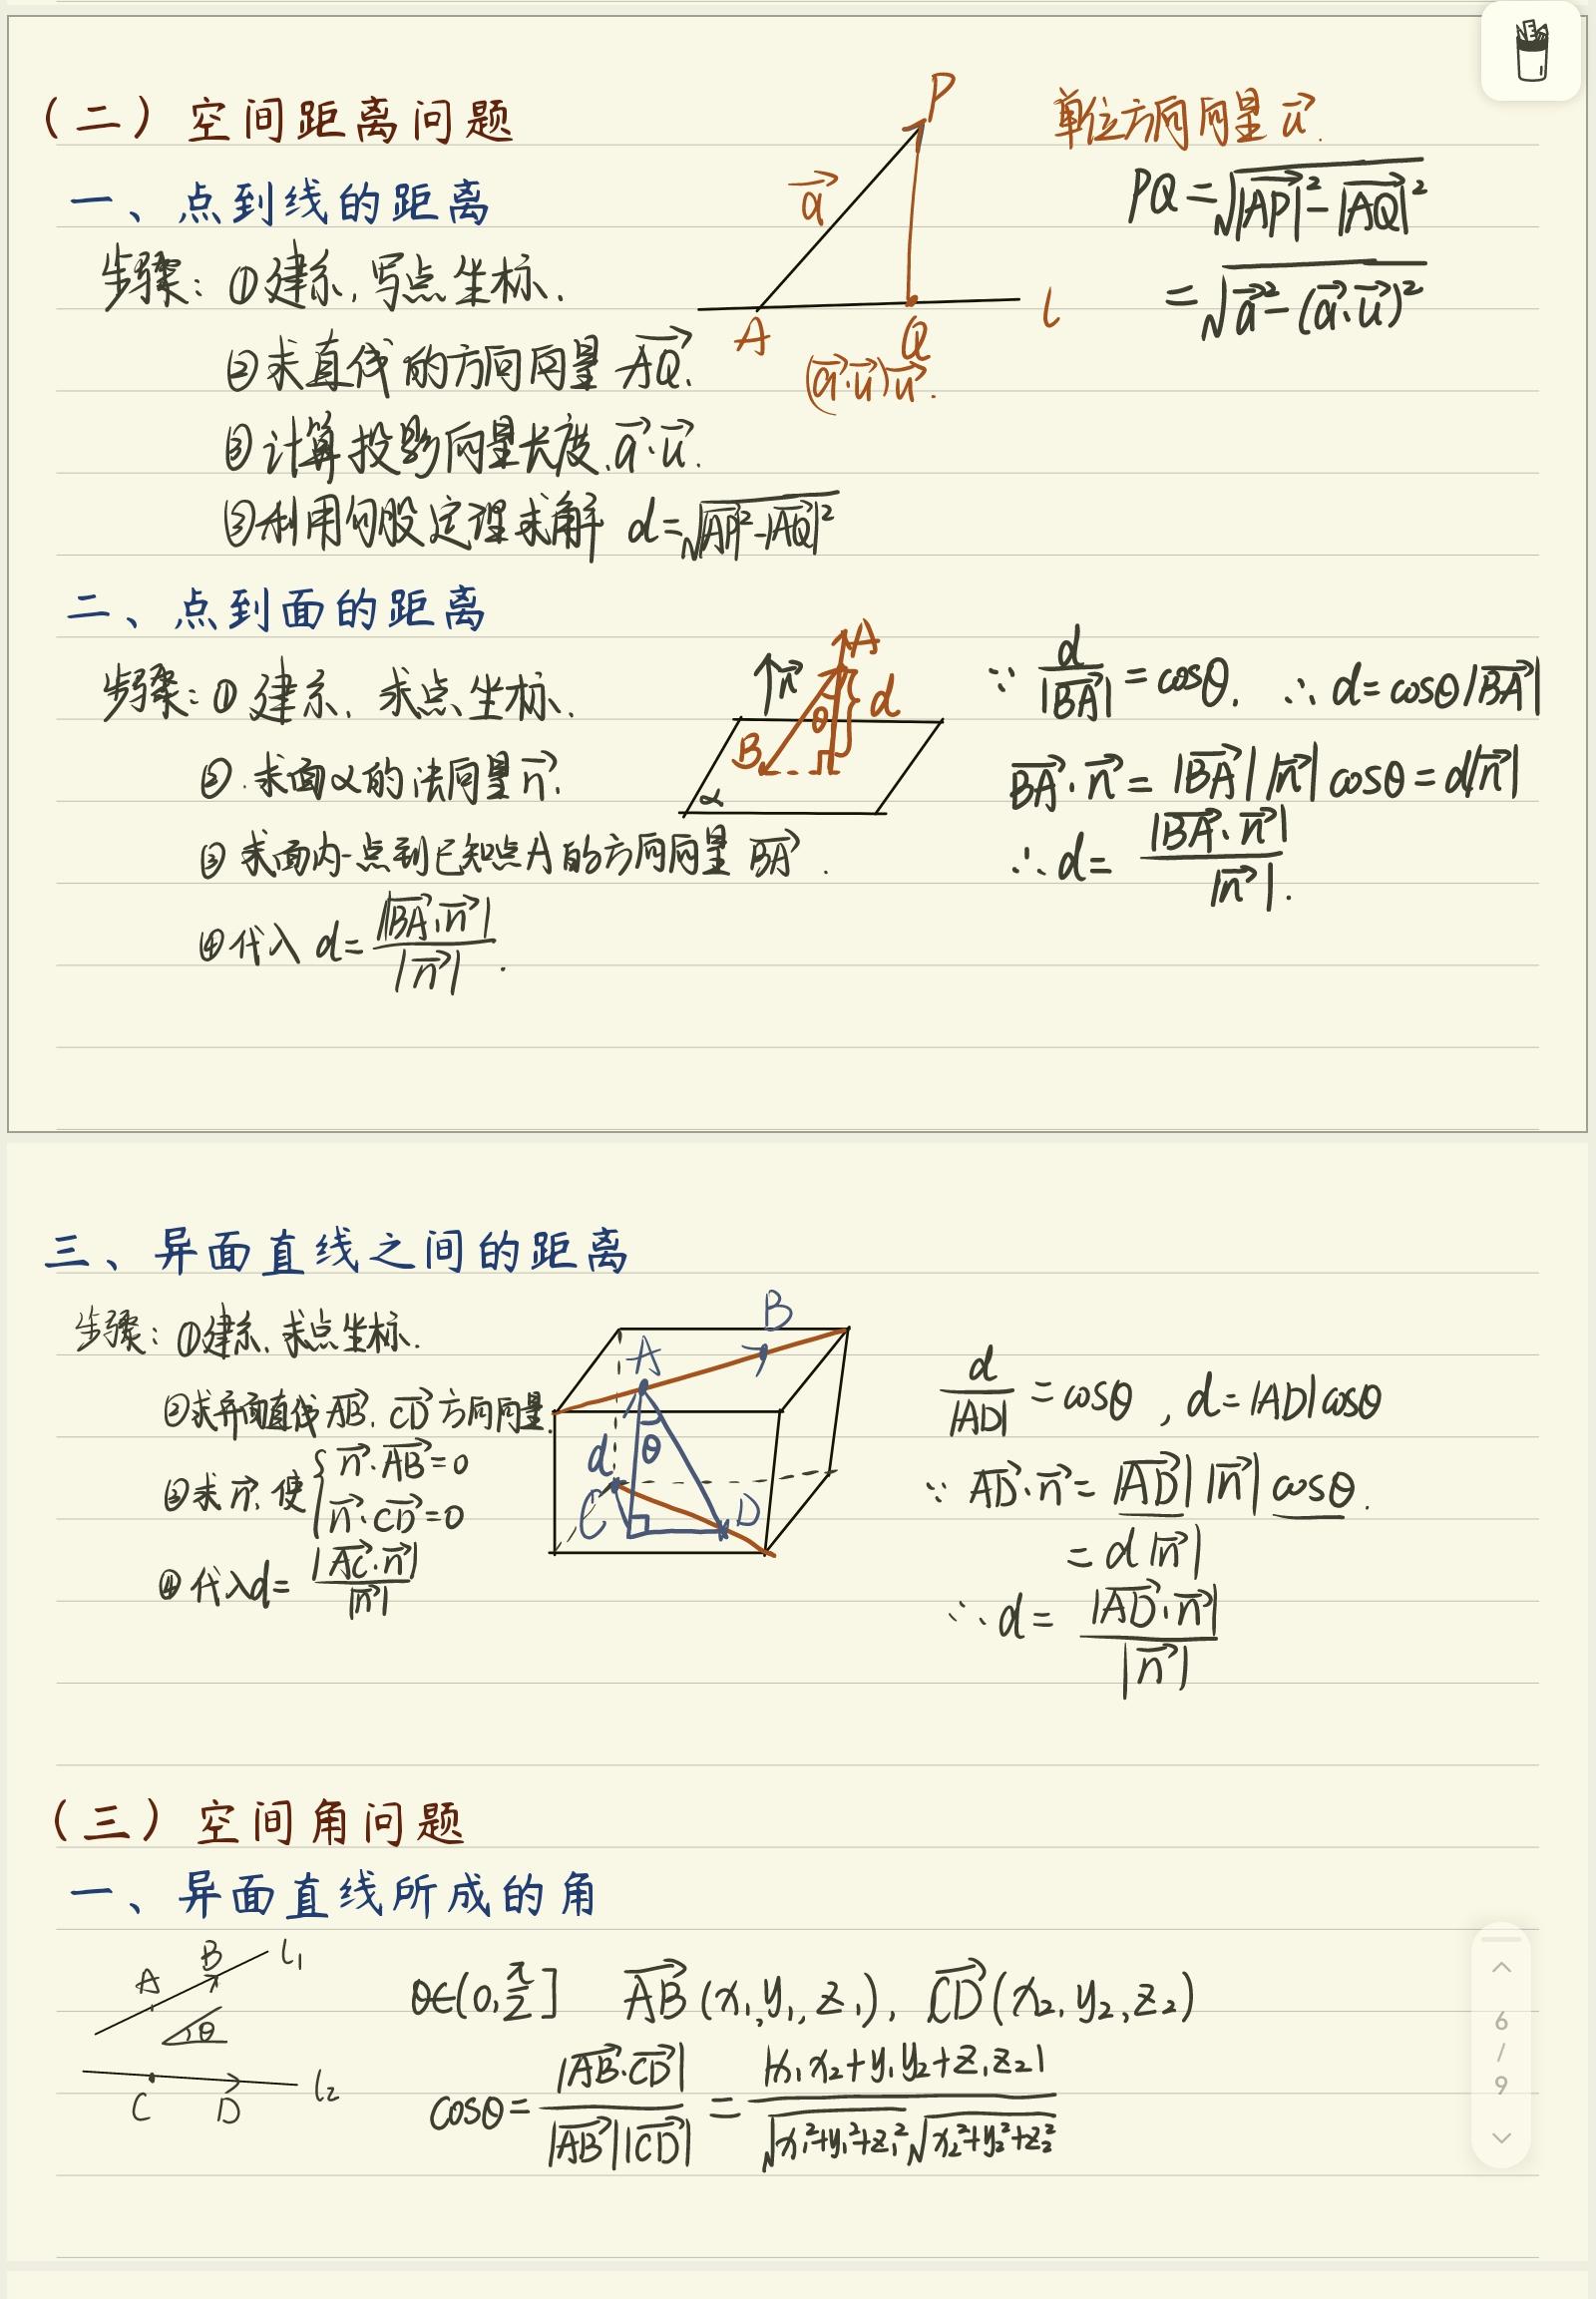 （二）空间距离问题
一、点到线的距离
步骤：①建系，写点坐标．
②求直线的方向向量 \overrightarrow{AQ}．
③计算投影向量长度．\vec{a}·\vec{u}．
③利用勾股定理求解 d=\sqrt{|\overrightarrow{AP}|^2-|\overrightarrow{AQ}|^2}
P
\vec{a}
A
Q
l
(\vec{a}·\vec{u})\vec{u}．
单位方向向量 \vec{u}．
PQ=\sqrt{|\overrightarrow{AP}|^2-|\overrightarrow{AQ}|^2}
=\sqrt{\vec{a}^2-(\vec{a}·\vec{u})^2}
二、点到面的距离
步骤：①建系，求点坐标．
②．求面α的法向量\vec{n}．
③求面内一点到已知点A的方向向量 \overrightarrow{BA}．
④代入 d=\frac{|\overrightarrow{BA}·\vec{n}|}{|\vec{n}|}．
\vec{n}
A
θ
d
B
α
∵ \frac{d}{|\overrightarrow{BA}|}=cosθ． ∴ d=cosθ|\overrightarrow{BA}|
\overrightarrow{BA}·\vec{n}=|\overrightarrow{BA}||\vec{n}|cosθ=d|\vec{n}|
∴ d=\frac{|\overrightarrow{BA}·\vec{n}|}{|\vec{n}|}．
三、异面直线之间的距离
步骤：①建系，求点坐标．
②求异面直线\overrightarrow{AB}，\overrightarrow{CD}方向向量．
③求\vec{n}，使{\vec{n}·\overrightarrow{AB}=0
\vec{n}·\overrightarrow{CD}=0
④代入d=\frac{|\overrightarrow{AC}·\vec{n}|}{|\vec{n}|}
B
A
d
θ
C
D
\frac{d}{|AD|}=cosθ，d=|AD|cosθ
∵ \overrightarrow{AD}·\vec{n}=|\overrightarrow{AD}||\vec{n}|cosθ．
=d|\vec{n}|
∴ d=\frac{|\overrightarrow{AD}·\vec{n}|}{|\vec{n}|}
（三）空间角问题
一、异面直线所成的角
A
B
l_1
θ
C
D
l_2
θ∈(0,\frac{π}{2}] \overrightarrow{AB}(x_1,y_1,z_1)，\overrightarrow{CD}(x_2,y_2,z_2)
cosθ=\frac{|\overrightarrow{AB}·\overrightarrow{CD}|}{|\overrightarrow{AB}||\overrightarrow{CD}|}=\frac{|x_1x_2+y_1y_2+z_1z_2|}{\sqrt{x_1^2+y_1^2+z_1^2}\sqrt{x_2^2+y_2^2+z_2^2}}
6
/
9